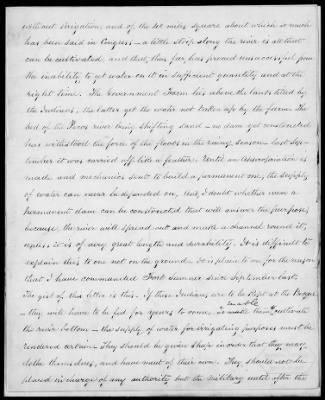 without irrigation, and of the 40 miles square about which so much
has been said in Congress – a little strip along the river is all that
can be cultivated, and that, thus far, has proved unsuccessful from
the inability to get water on it in sufficient quantity and at the
right time. The Government Farm lies above the lands tilled by
the Indians, the latter get the water not taken up by the farm. The
bed of the Pecos river being shifting sand – no dam yet constructed
has withstood the force of the floods in the rainy season. Last Sep-
tember it was carried off like a feather. Until an appropriation is
made and mechanics sent to build a permanent one, the supply
of water can never be depended on, and I doubt whether even a
permanent dam can be constructed that will answer the purpose,
because the river will spread out and make a channel round it,
unless it is of very great length and durability. It is difficult to
explain this to one not on the ground. It is plain to me for the reason
that I have commanded Fort Sumner since September last.
The gist of this letter is this. If these Indians are to be kept at the Bosque
– they will have to be fed for years to come. To enable them to cultivate
the river bottom – the supply of water for irrigating purposes must be
rendered certain. They should be given sheep in order that they may
clothe themselves, and have meat of their own. They should not be
placed in charge of any authority but the military until after the